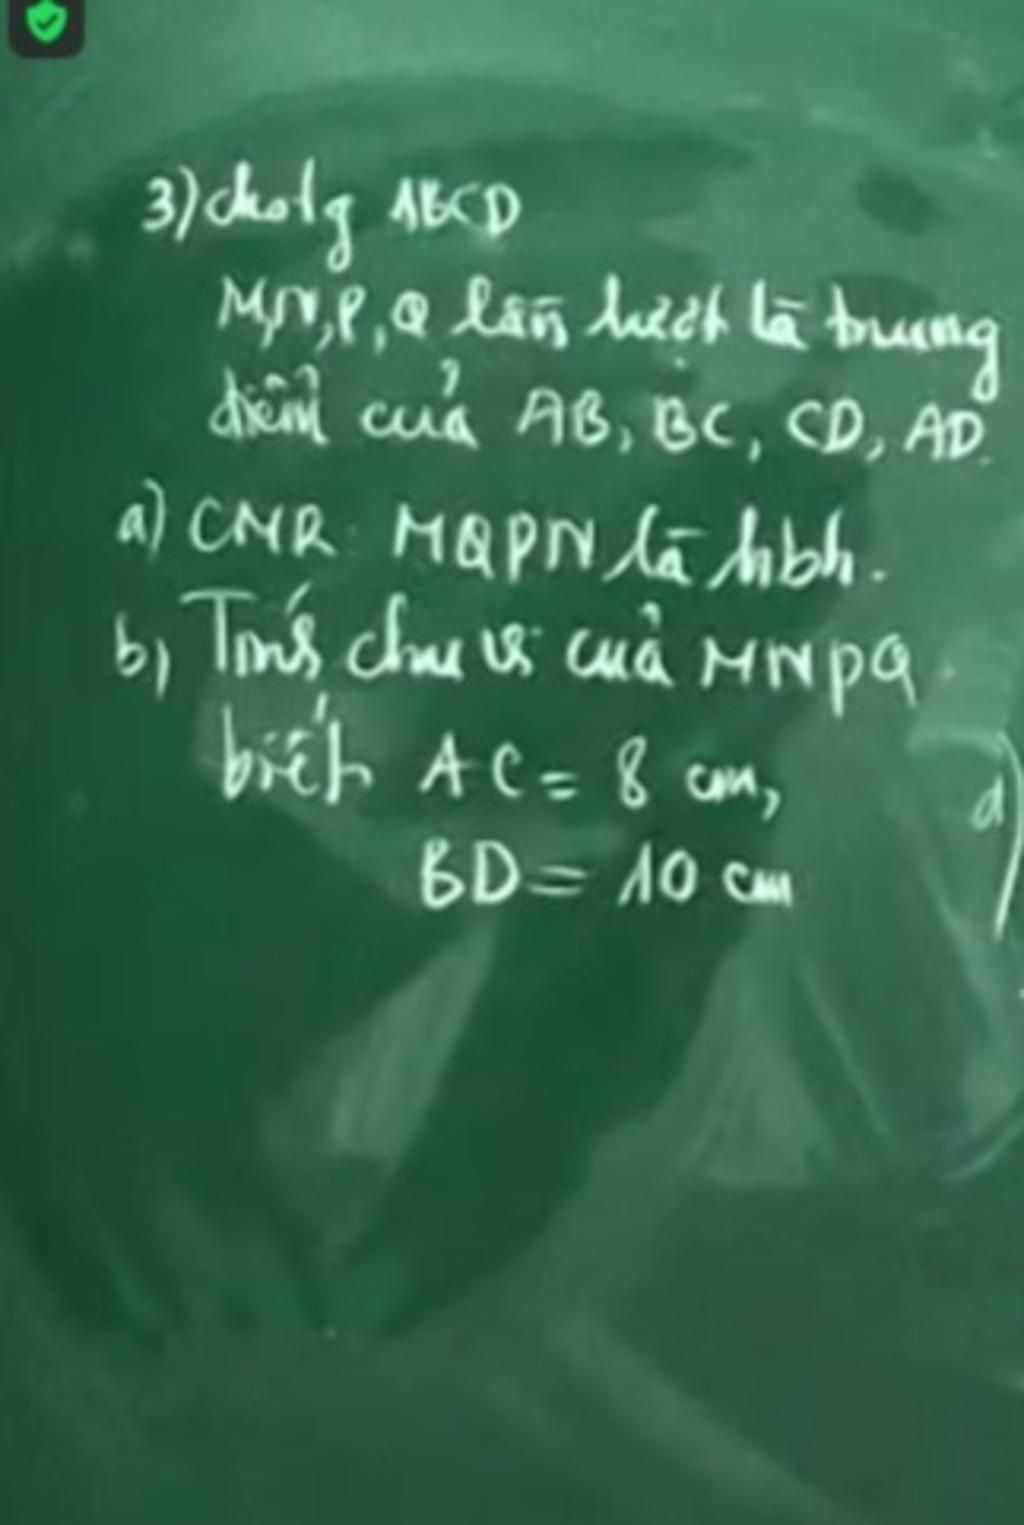 3) cho tg ABCD
M,N,P,Q lần lượt là trung
điểm của AB, BC, CD, AD.
a) CMR MQPN là hbh.
b) Tính chu vi của MNPQ
biết AC = 8 cm,
BD = 10 cm
d)